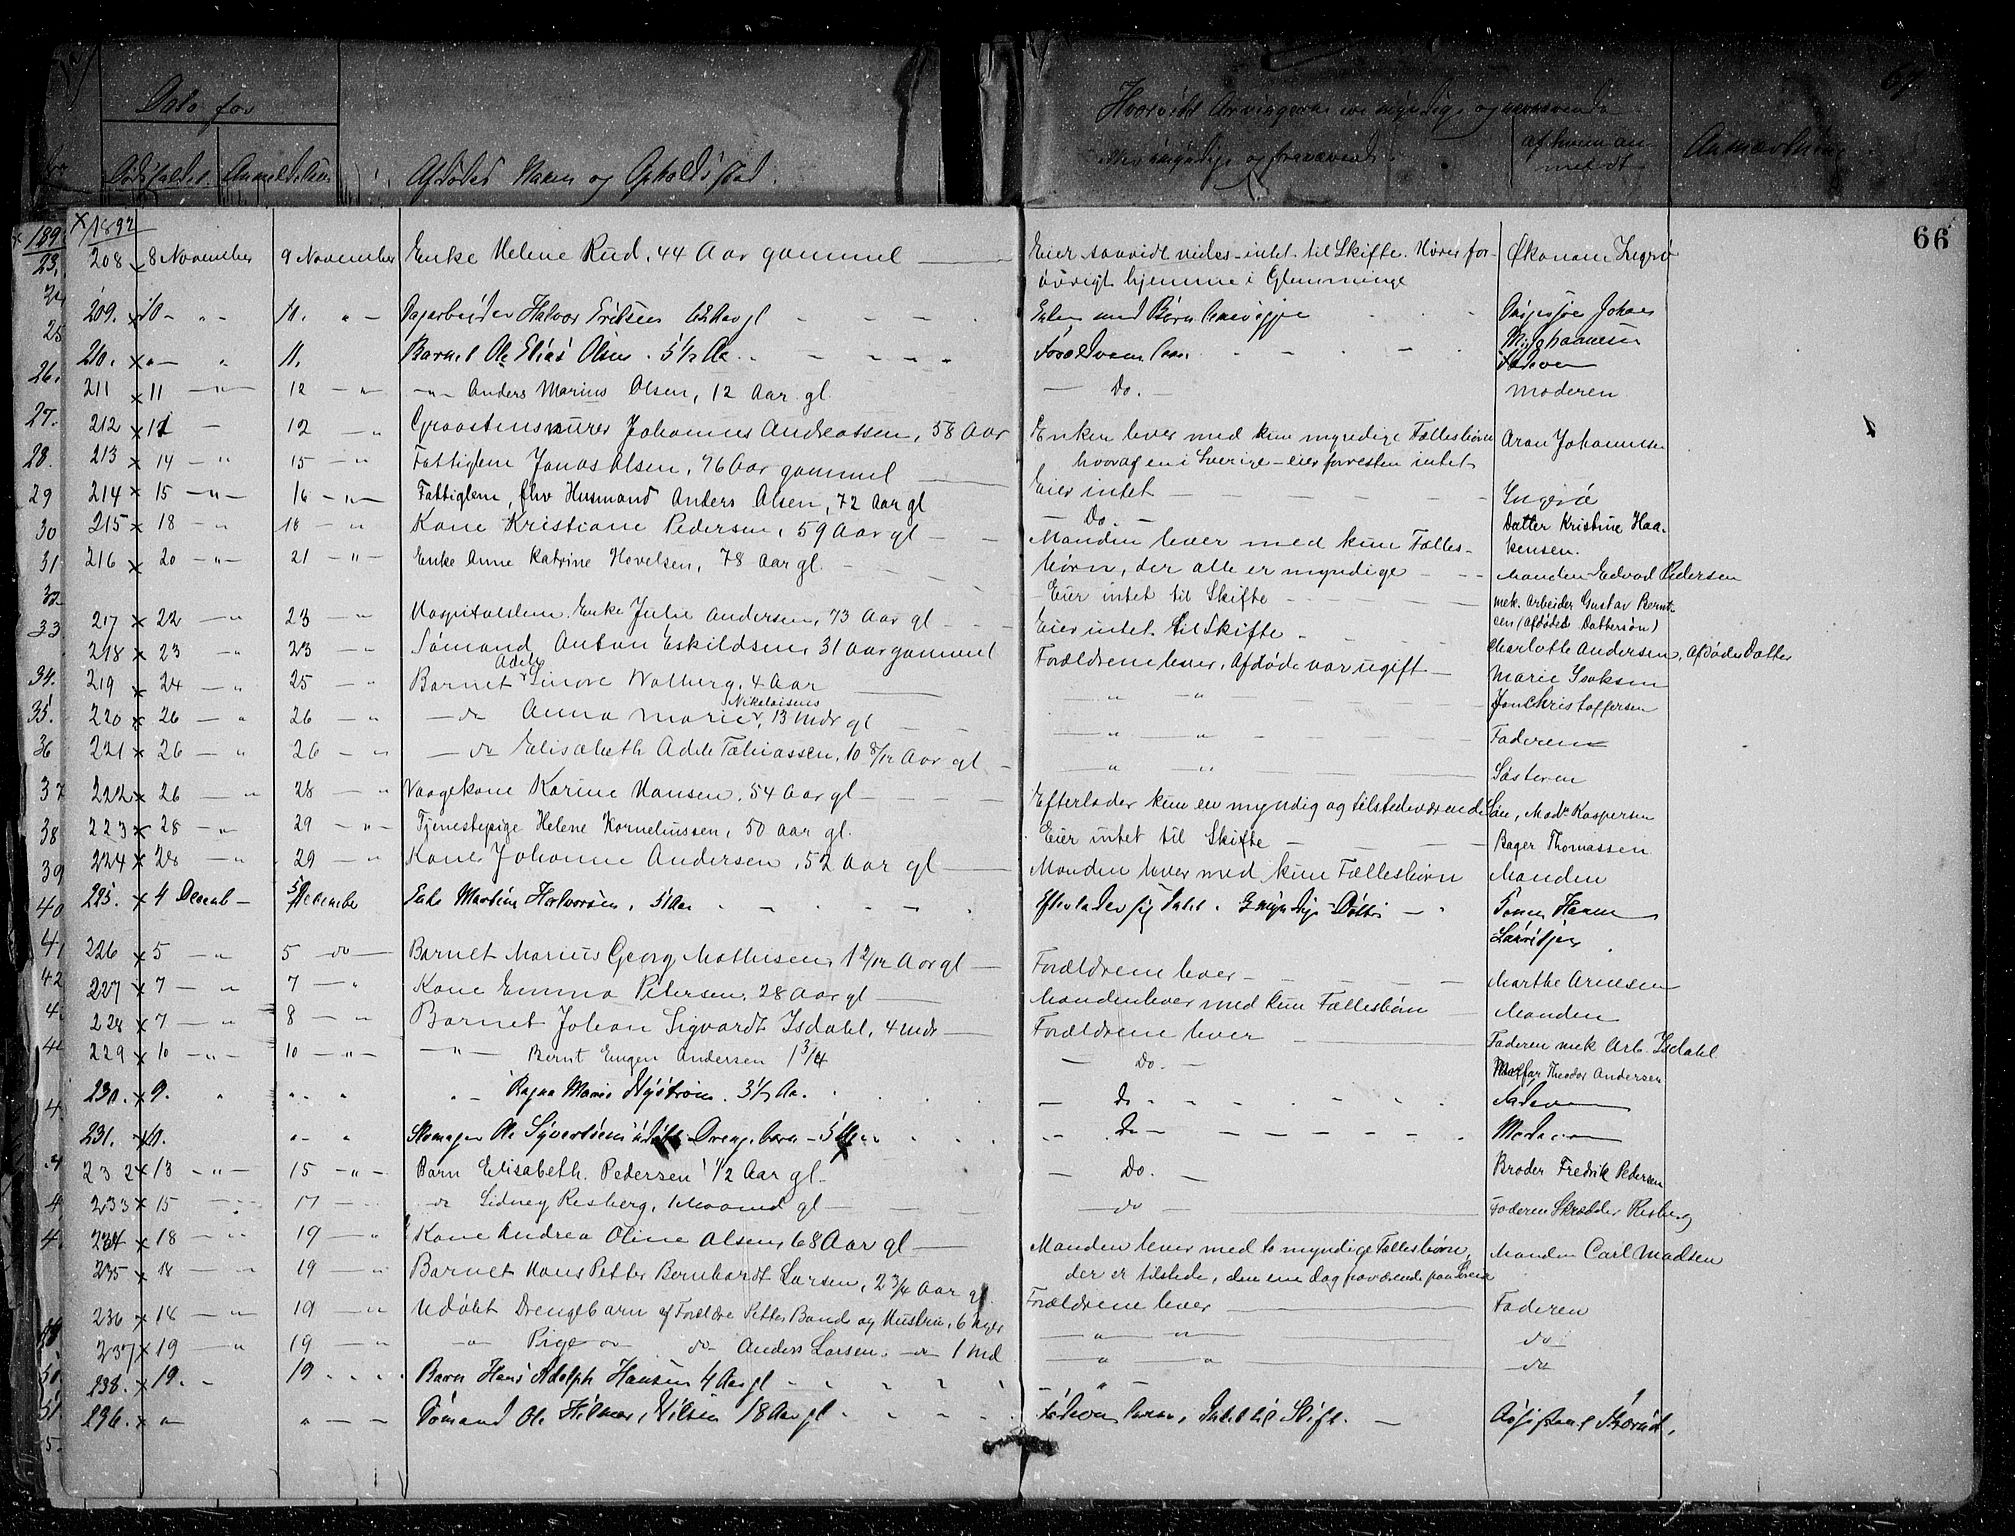 Dato for
Dødsfaldet. Anmeldelsen
Afdødes Navn og Opholdssted.
Hvorvidt Arvingerne ere myndige og nærværende
eller umyndige og fraværende.
af hvem anmeldt
Anmærkning
66
1892
208 x 8 November 9 November Enke Helene Rud, 44 Aar gammel Eier saavidt vides intet til Skifte. Hører for- Økonom Ingerø
øvrigt hjemme i Glemminge
209. x 10 11. Dagarbeider Halvor Eriksen 62 Aar gl Johan
210. x 11. Barnet Ole Elias Olsen. 5 1/2 Aar Faderen
211 x 11 12 Anders Marius Olsen, 12 Aar gl. Do. Moderen
212 x 11 12 Graastensmurer Johannes Andreassen, 58 Aar Enken lever med kun myndige Fællesbørn Aron Johannesen
213 x 14 15 Fattiglem Jonas Olsen, 76 Aar gammel hvoraf en i Sverige – eier forresten intet
214 x 15 16 Fattiglem, fhv Husmand Anders Olsen, 72 Aar gl Eier intet Ingerø
215 x 18 18 Kone Kristiane Pedersen, 59 Aar gl Do. Datter Kristine Haa-
kensen.
216 x 20 21 Enke Anne Katrine Hovelsen, 78 Aar gl. Manden lever med kun Fælles-
børn, der alle er myndige Manden Edvard Pedersen
217 x 22 23 Hospitalslem Enke Julie Andersen, 73 Aar gl Eier intet til Skifte mek. Arbeider Gustav Bernt-
sen (Afdødes Dattersøn)
218 x 23 23 Sømand Anton Eskildsen, 31 Aar gammel Eier intet til Skifte Charlotte Andersen, Afdødes Datter
219 x 24 25 Barnet Adele Sinove Walberg, 4 Aar Forældrene lever, Afdøde var ugift Marie Isaksen
220 x 26 26 do Anna Marie Nikolaisens, 13 Mdr gl Jon Christoffersen
221 x 26 26 do Elisabeth Adele Tobiassen, 10 8/12 Aar gl Faderen
Søsteren
222 x 26 28 Vaagekone Karine Hansen, 54 Aar gl Efterlader kun en myndig og tilstedeværende Søn, Mads Kaspersen
223 x 28 29 Tjenestepige Helene Korneliussen, 50 Aar gl. Eier intet til Skifte Bager Thomassen
224 x 28 29 Kone Johanne Andersen, 52 Aar gl Manden lever med kun Fællesbørn Manden
225. x 4 Decemb 5 December Enke Martine Halvorsen, 51 Aar Efterlader sig Intet. 2 myndige Døttre
226 x 5 5 do Barnet Marius Georg Mathisen, 1 2/12 Aar gl Forældrene lever Marthe Arnesen
227 x 7 7 Kone Emma Petersen, 28 Aar gl Manden lever med kun Fællesbørn Manden
228 x 7 8 Barnet Johan Sigvardt Isdahl, 4 Mdr Forældrene lever Faderen mek Arb. Isdahl
229 x 10 10 Bernt Eugen Andersen 1 3/4 Do. Morfar Theodor Andersen
230. x 9. Ragna Marie Nystrøm. 3 1/2 Aar Do Faderen
231. x Ole Syvertsens udøbt Drengebarn Do Moderen
232 x 13 15 Barn Elisabeth Pedersen 1/2 Aar gl. Do. Broder Fredrik Pedersen
233 x 15 17 do Sidney Risberg, 1 Maaned gl do Faderen Skrædder Risberg
234 x 18 19 Kone Andrea Oline Olsen, 68 Aar gl Manden lever med to myndige Fællesbørn, Manden Carl Madsen
235 x 18 19 Barnet Hans Petter Bernhardt Larsen, 2 3/4 Aar gl der er tilstede, den ene dog fraværende paa Reise
236 x 18 19 Udøbt Drengebarn af Forældre Petter Bande og Hustru, 6 Uger Forældrene lever Faderen
237 x 19 19 Pige do Anders Larsen 1 Md do
238. x 19. 19 Barn Hans Adolph Hansen 4 Aar gl do
236. x Sømand Ole Hilmar Nilsen 18 Aar gl Intet til Skifte.